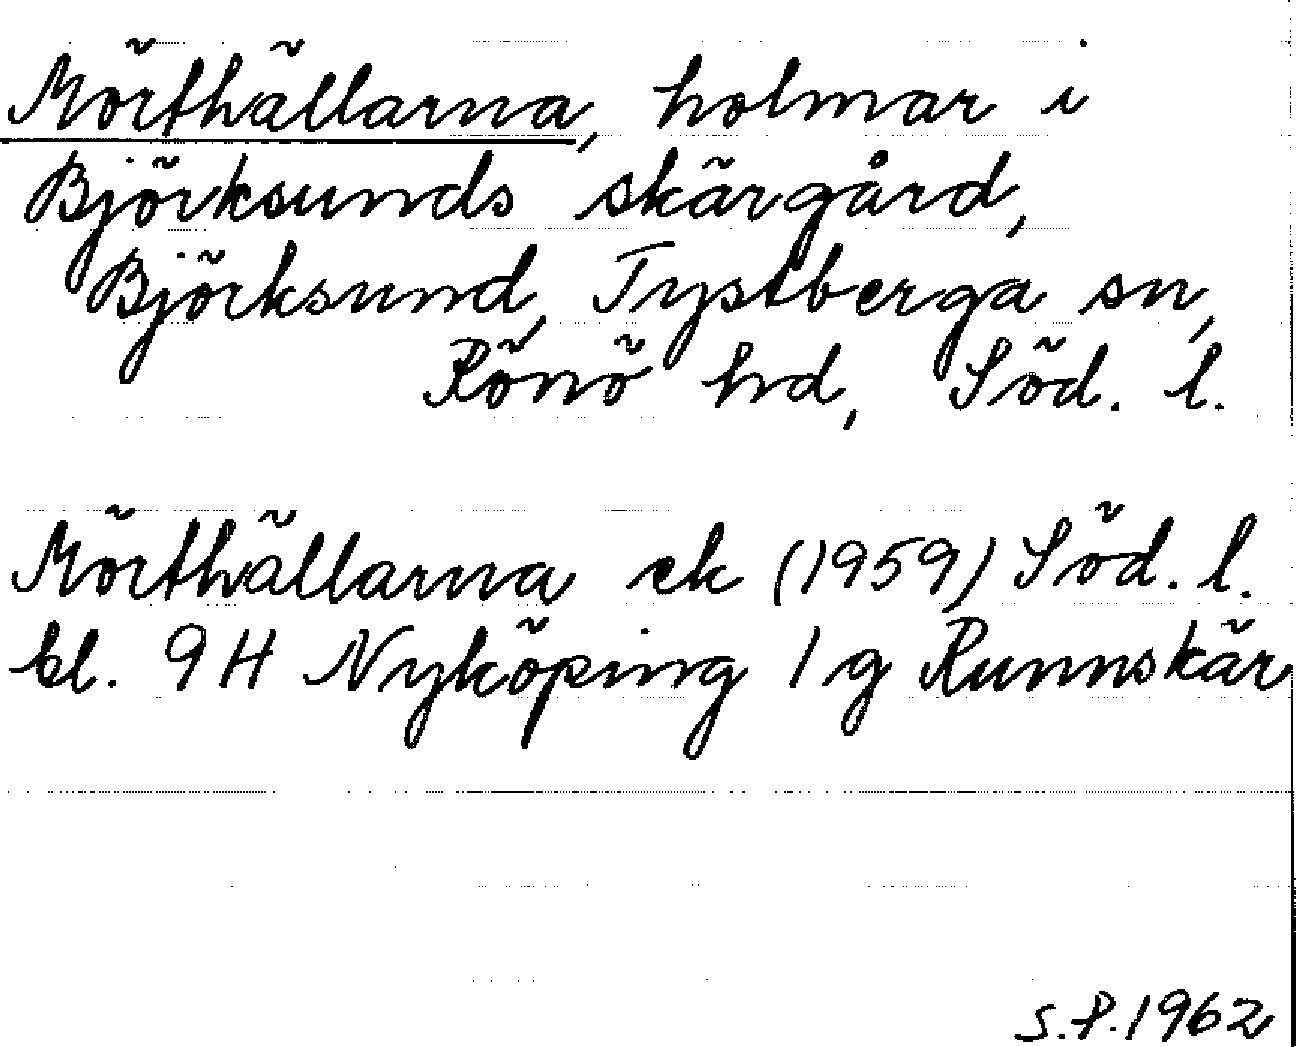 Mörthällarna, holmar i
Björksunds skärgård,
Björksund, Tystberga sn,
Rönö hd, Söd. l.
Mörthällarna ek (1959) Söd. l.
bl. 9H Nyköping 1g Runnskär
S.P.1962